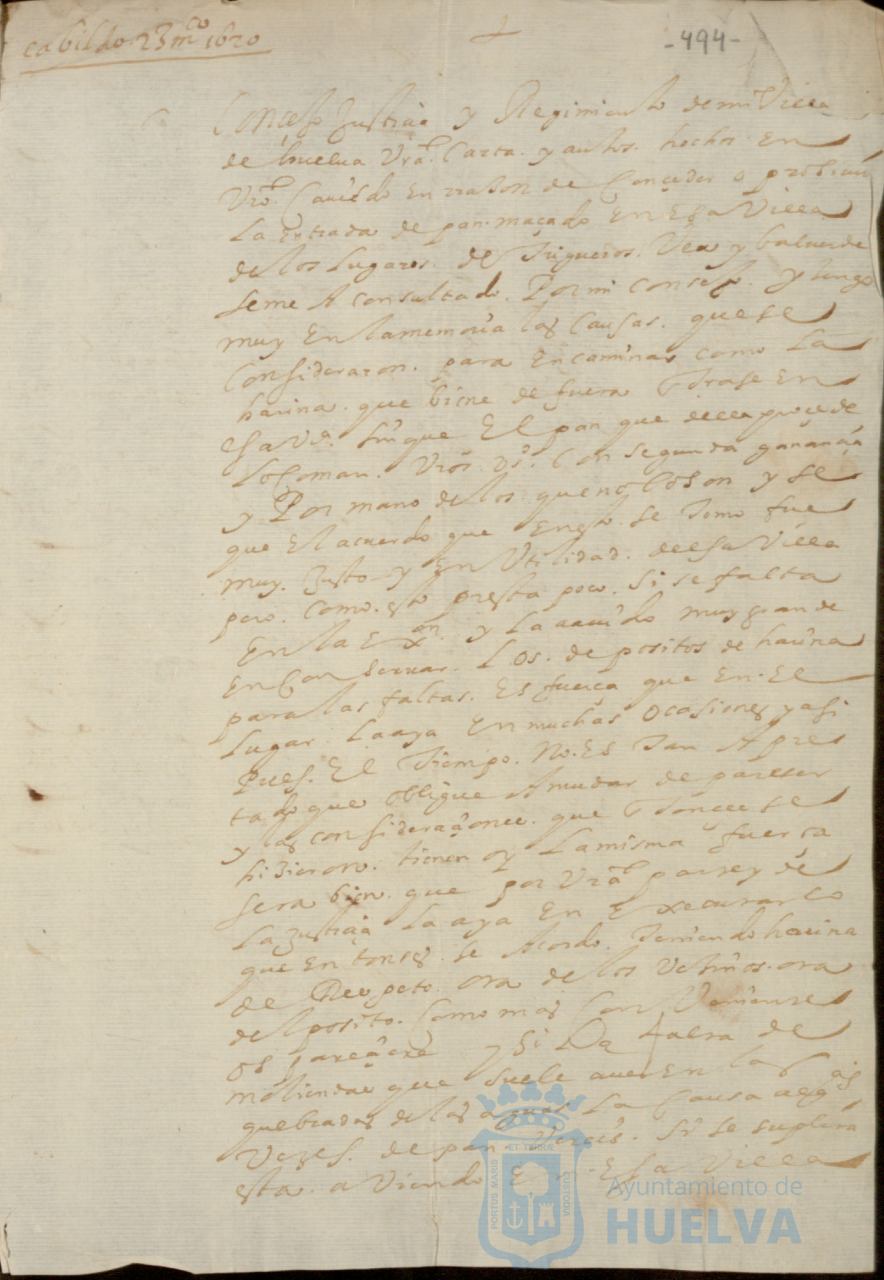 cabildo 23 mço 1620
-494-
Conçejo Justiçia y Regimiento de mi Villa
de huelua Vrª. Carta. y autos. hechos. en
Vrº. Cauildo en rraçon de Conçeder o prohiuir
La entrada de pan. maçado en Esa Villa
de los Lugares. de Trigueros. Vea y balverde
se me A consultado. Por mi Consejo. y tengo
muy En la memoria las Causas. que se
Consideraron. para encaminar como La
harina. que biene de fuera entrase en
esa Vª. sin que El pan que della proçede
lo coman. Vros. Vºs. Con segunda ganançia
y Por mano de los que no lo son y se
que El acuerdo que En esto. se tomo fue
muy. Justo y En Utilidad. de esa Villa
pero. como. esto presta poco. si se falta
En la Exon. y La a auido muy grande
En Conseruar. Los. depositos de harina
para las faltas. Es fuerça que en. El
Lugar. La aya En muchas ocasiones y asi
Pues. El Tiempo. No. Es Tan Apre
tado que obligue A mudar de pareçer
y las consideraçiones. que entonçes se
hizieron. tienen oy La misma fuerça
sera bien. que por Vrª parte y de
La Justiçia La aya En Executar lo
que Entonçes. se Acordo. Teniendo harina
de Respeto. ora de los Veçinos. ora
del posito. Como mas Conveniente
os pareçiere y si La falta de
moliendas que suele auer En las
quebradas de las aguas. La Causa alg
Vezes. de pan. se suplira
esta. aViendo En. Esa Villa
PORTUS MARIS ET TERRAE CUSTODIA
Ayuntamiento de
HUELVA